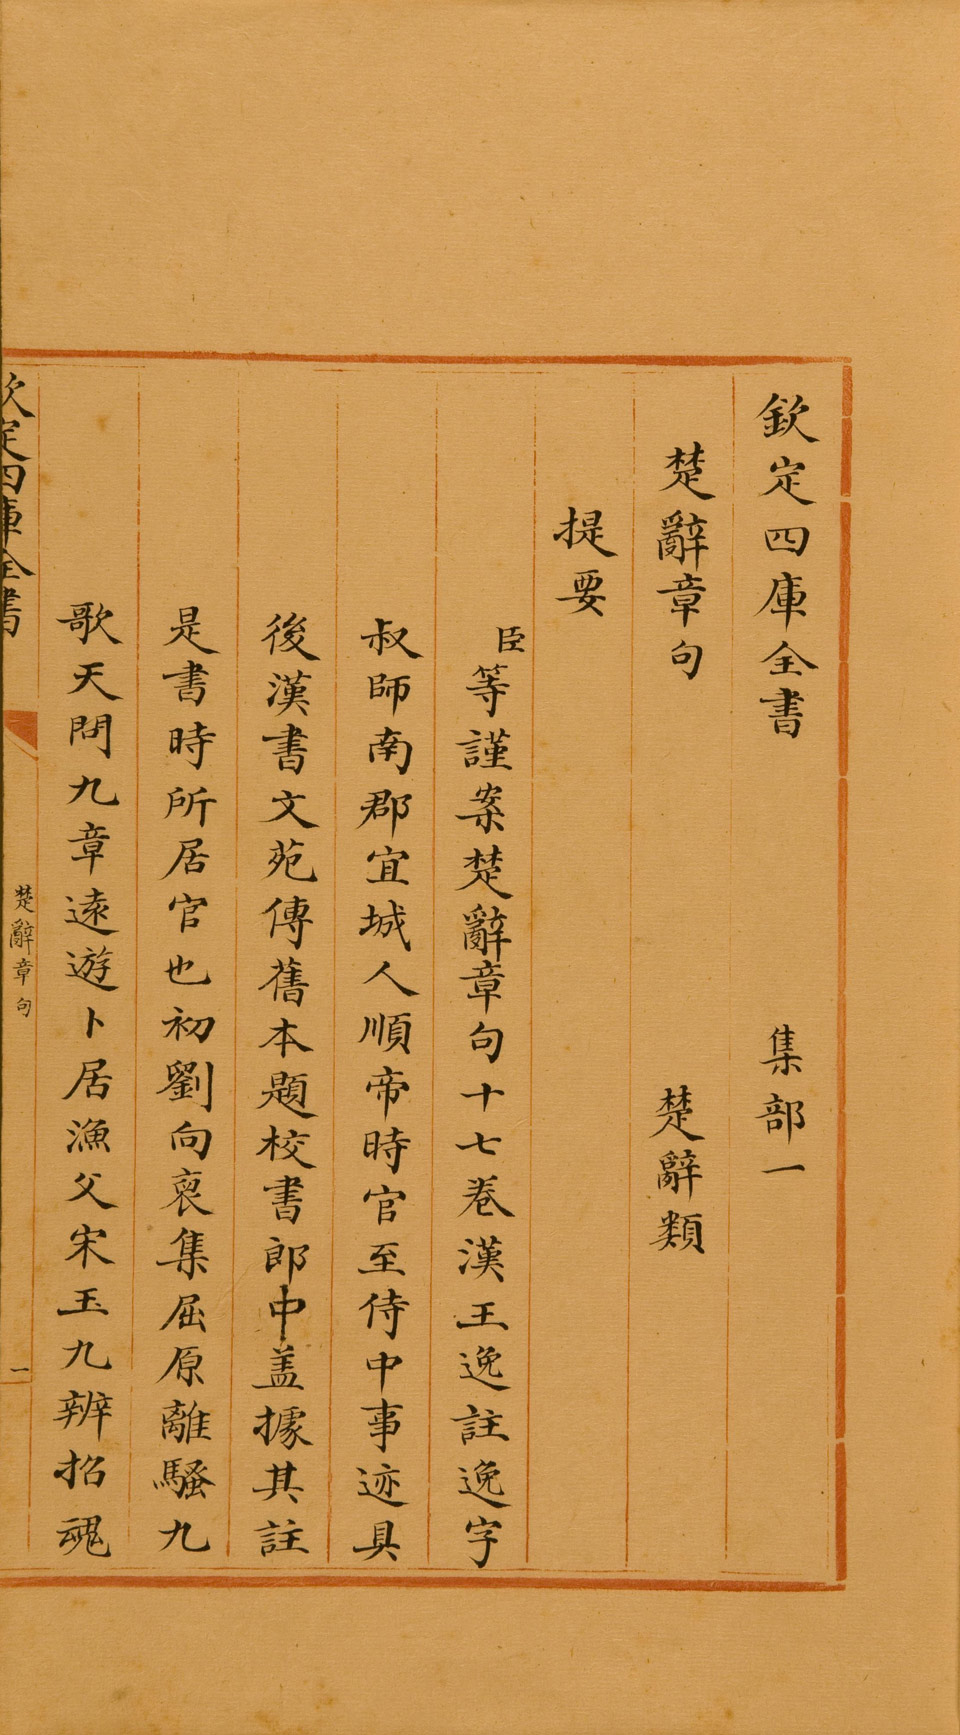 欽定四庫全書 集部一
楚辭章句 楚辭類
提要
臣等謹案楚辭章句十七卷漢王逸註逸字
叔師南郡宜城人順帝時官至侍中事迹具
後漢書文苑傳舊本題校書郎中盖據其註
是書時所居官也初劉向裒集屈原離騷九
歌天問九章遠遊卜居漁父宋玉九辨招魂
欽定四庫全書 楚辭章句 一